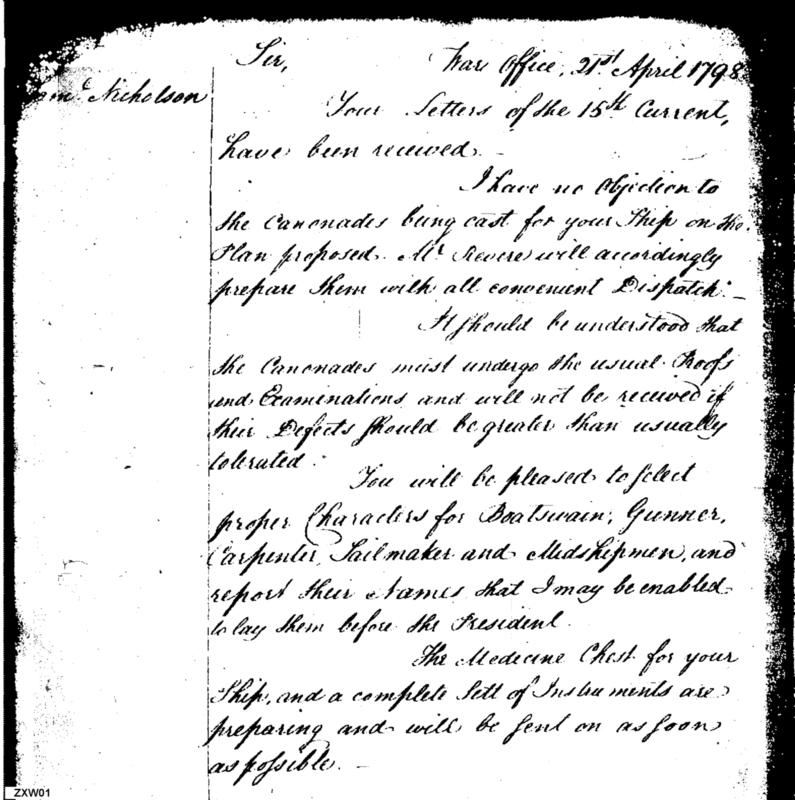 Sir,
War Office, 21st April 1798
Saml. Nicholson
Your Letters of the 15th Current,
have been received.
I have no Objection to
the Canonades being cast for your Ship on the
Plan proposed. Mr Revere will accordingly
prepare them with all convenient Dispatch. _
It should be understood that
the Canonades must undergo the usual Proofs
and Examinations and will not be received if
their Defects should be greater than usually
tolerated.
You will be pleased to select
proper Characters for Boatswain, Gunner,
Carpenter, Sailmaker and Midshipmen, and
report their Names that I may be enabled
to lay them before the President.
The Medecine Chest for your
Ship, and a complete Sett of Instruments are
preparing and will be sent on as soon
as possible. _
ZXW01